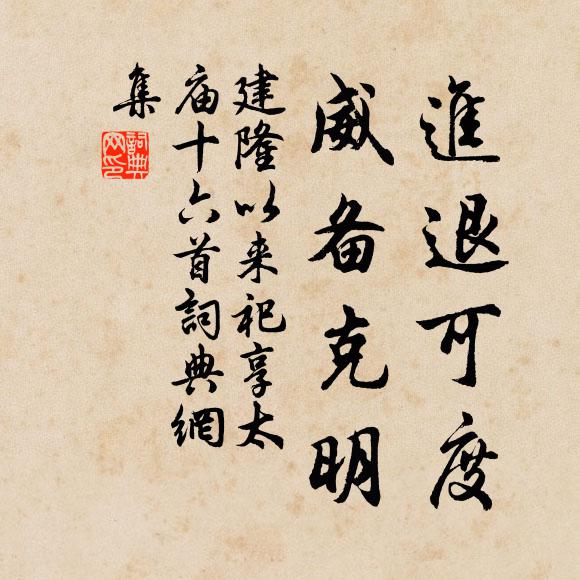 進退可度
威备克明
建隆以来祀享太
庙十六首詞典網
集
詞典网印